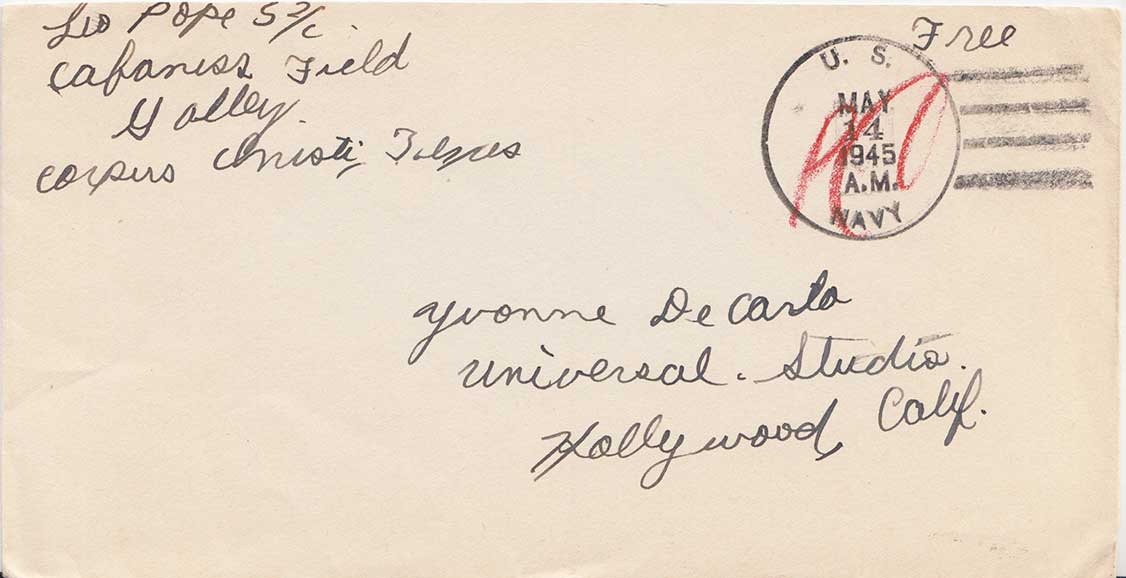 Leo Pope S 2/c
Cabaniss Field
Galley.
Corpus Christi, Texas
Free
U. S.
MAY
14
1945
A.M.
NAVY
Yvonne De Carlo
Universal. Studio.
Hollywood, Calif.